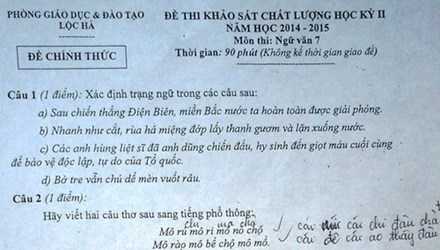 PHÒNG GIÁO DỤC & ĐÀO TẠO
LỘC HÀ
ĐỀ CHÍNH THỨC
ĐỀ THI KHẢO SÁT CHẤT LƯỢNG HỌC KỲ II
NĂM HỌC 2014 - 2015
Môn thi: Ngữ văn 7
Thời gian: 90 phút (Không kể thời gian giao đề)
Câu 1 (1 điểm): Xác định trạng ngữ trong các câu sau:
a) Sau chiến thắng Điện Biên, miền Bắc nước ta hoàn toàn được giải phóng.
b) Nhanh như cắt, rùa há miệng đớp lấy thanh gươm và lặn xuống nước.
c) Các anh hùng liệt sĩ đã anh dũng chiến đấu, hy sinh đến giọt máu cuối cùng
để bảo vệ độc lập, tự do của Tổ quốc.
d) Bờ tre vắn chú dế mèn vuốt râu.
Câu 2 (1 điểm):
Hãy viết hai câu thơ sau sang tiếng phổ thông:
Mô rú mô ri mô nỏ chộ
Mô rào mô bể chộ mô mồ.